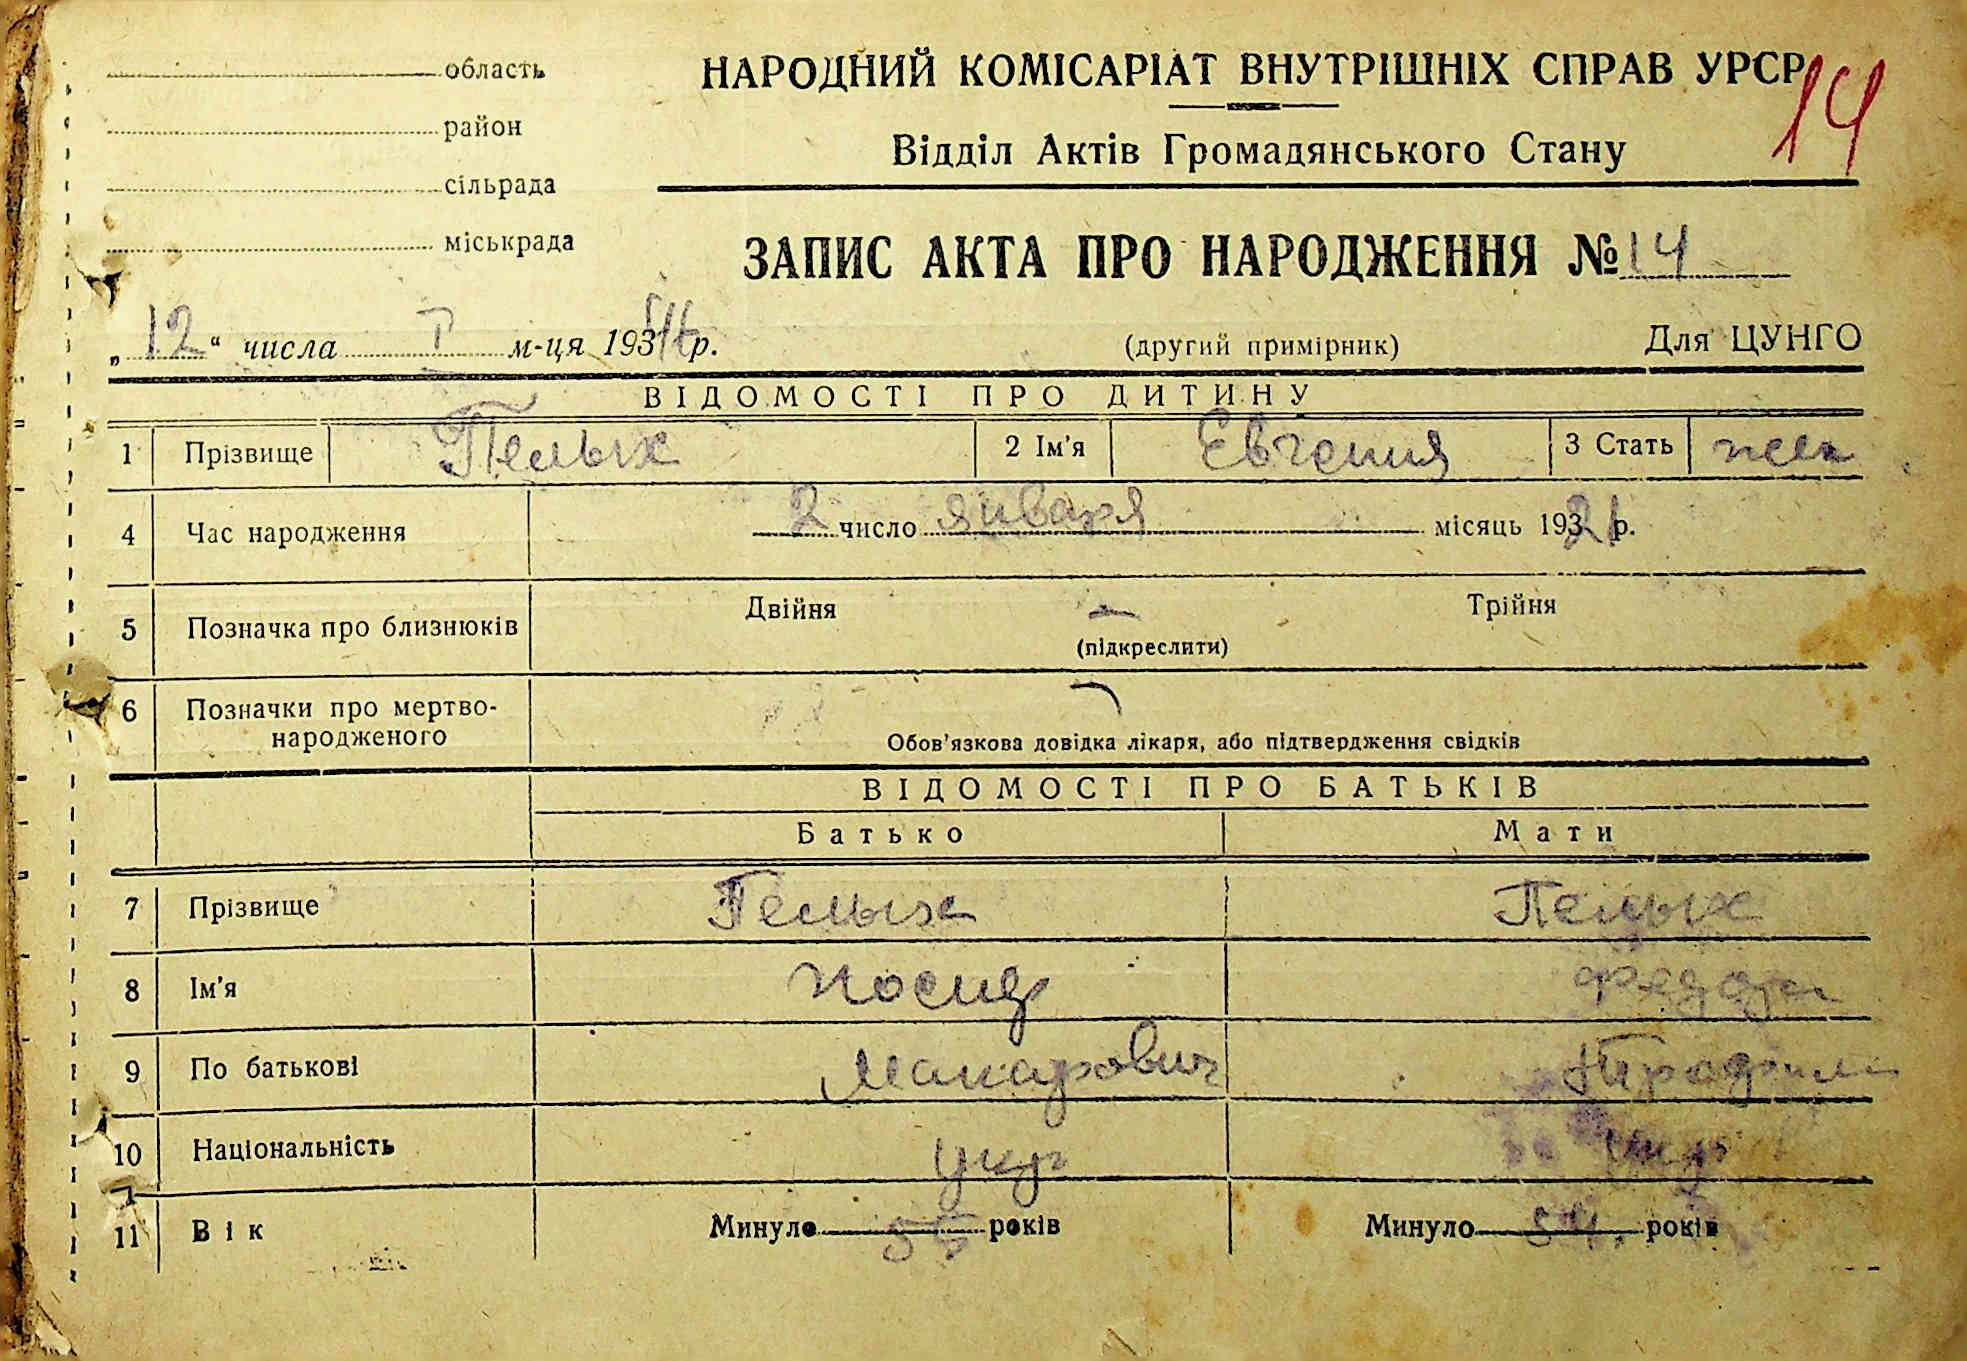 область
район
сільрада
міськрада
НАРОДНИЙ КОМІСАРІАТ ВНУТРІШНІХ СПРАВ УРСР
14
Відділ Актів Громадянського Стану
ЗАПИС АКТА ПРО НАРОДЖЕННЯ № 14
„12“ числа I м-ця 193 р.
(другий примірник)
Для ЦУНГО
ВІДОМОСТІ ПРО ДИТИНУ
1 Прізвище Пелых 2 Ім'я Евгения 3 Стать жен
4 Час народження 2 число января місяць 193 р.
5 Позначка про близнюків Двійня Трійня
(підкреслити)
6 Позначки про мертво-
народженого
Обов'язкова довідка лікаря, або підтвердження свідків
ВІДОМОСТІ ПРО БАТЬКІВ
Батько Мати
7 Прізвище Пелых Пелых
8 Ім'я
9 По батькові Макарович
10 Національність укр укр
11 Вік Минуло 55 років Минуло 54 років